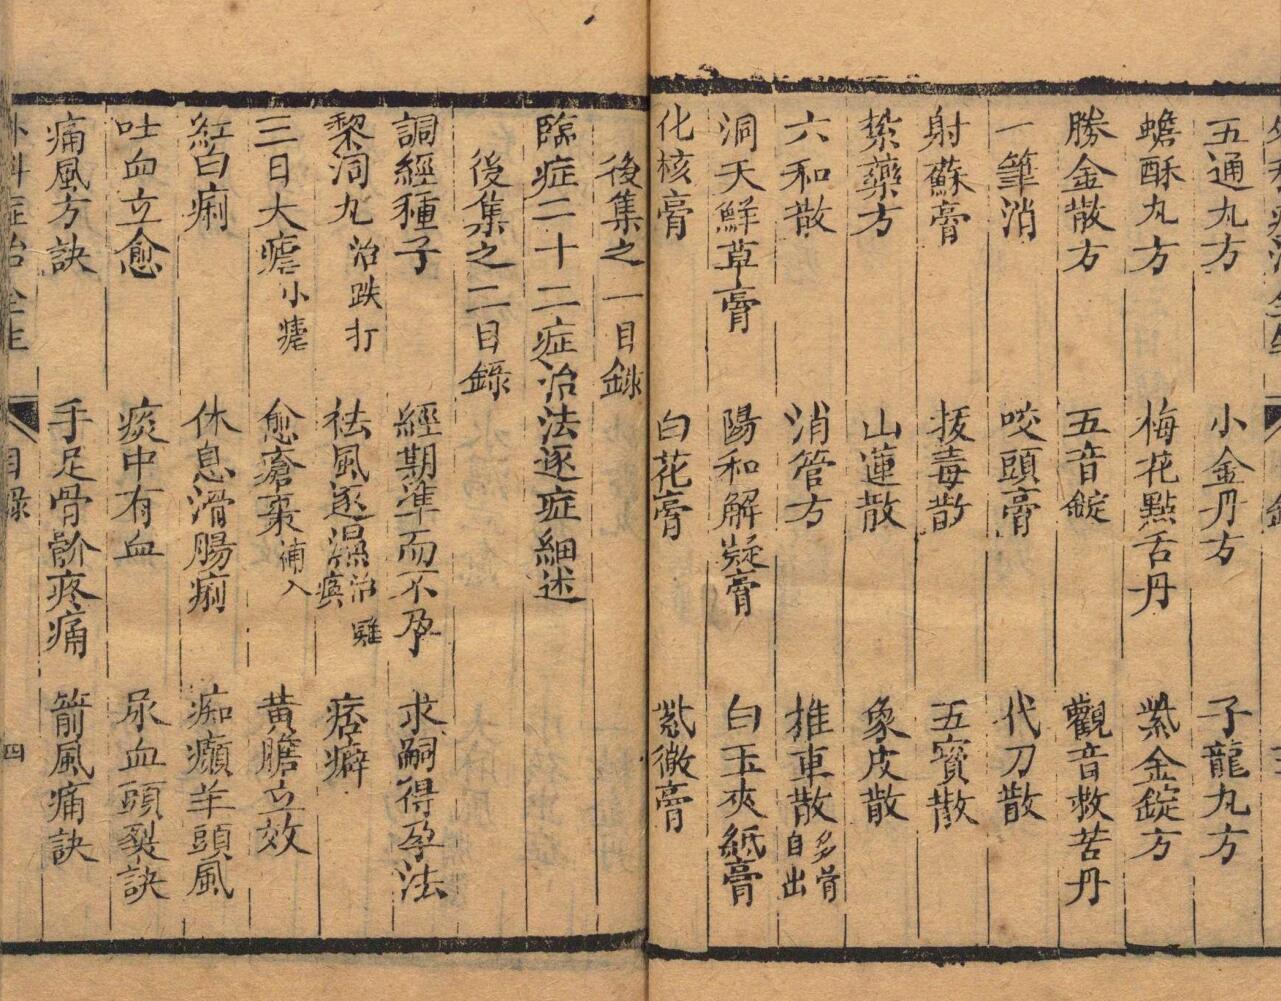 五通丸方 小金丹方 子龍丸方
蟾酥丸方 梅花點舌丹 紫金錠方
勝金散方 五音錠 觀音救苦丹
一筆消 咬頭膏 代刀散
射蘇膏 拔毒散 五寶散
紮藥方 山蓮散 象皮散
六和散 消管方 推車散多骨自出
洞天鮮草膏 陽和解凝膏 白玉夾紙膏
化核膏 白花膏 紫微膏
後集之一目錄
臨症二十二症治法逐症細述
後集之二目錄
調經種子 經期準而不孕 求嗣得孕法
黎洞丸治跌打 祛風逐濕治雞 痞癖
三日大瘧小瘧 愈瘡棗補入 黃膽立效
紅白痢 休息滑腸痢 痴癲羊頭風
吐血立愈 痰中有血 尿血頭裂訣
痛風方訣 手足骨骱疼痛 箭風痛訣
外科症治全生 目錄 四